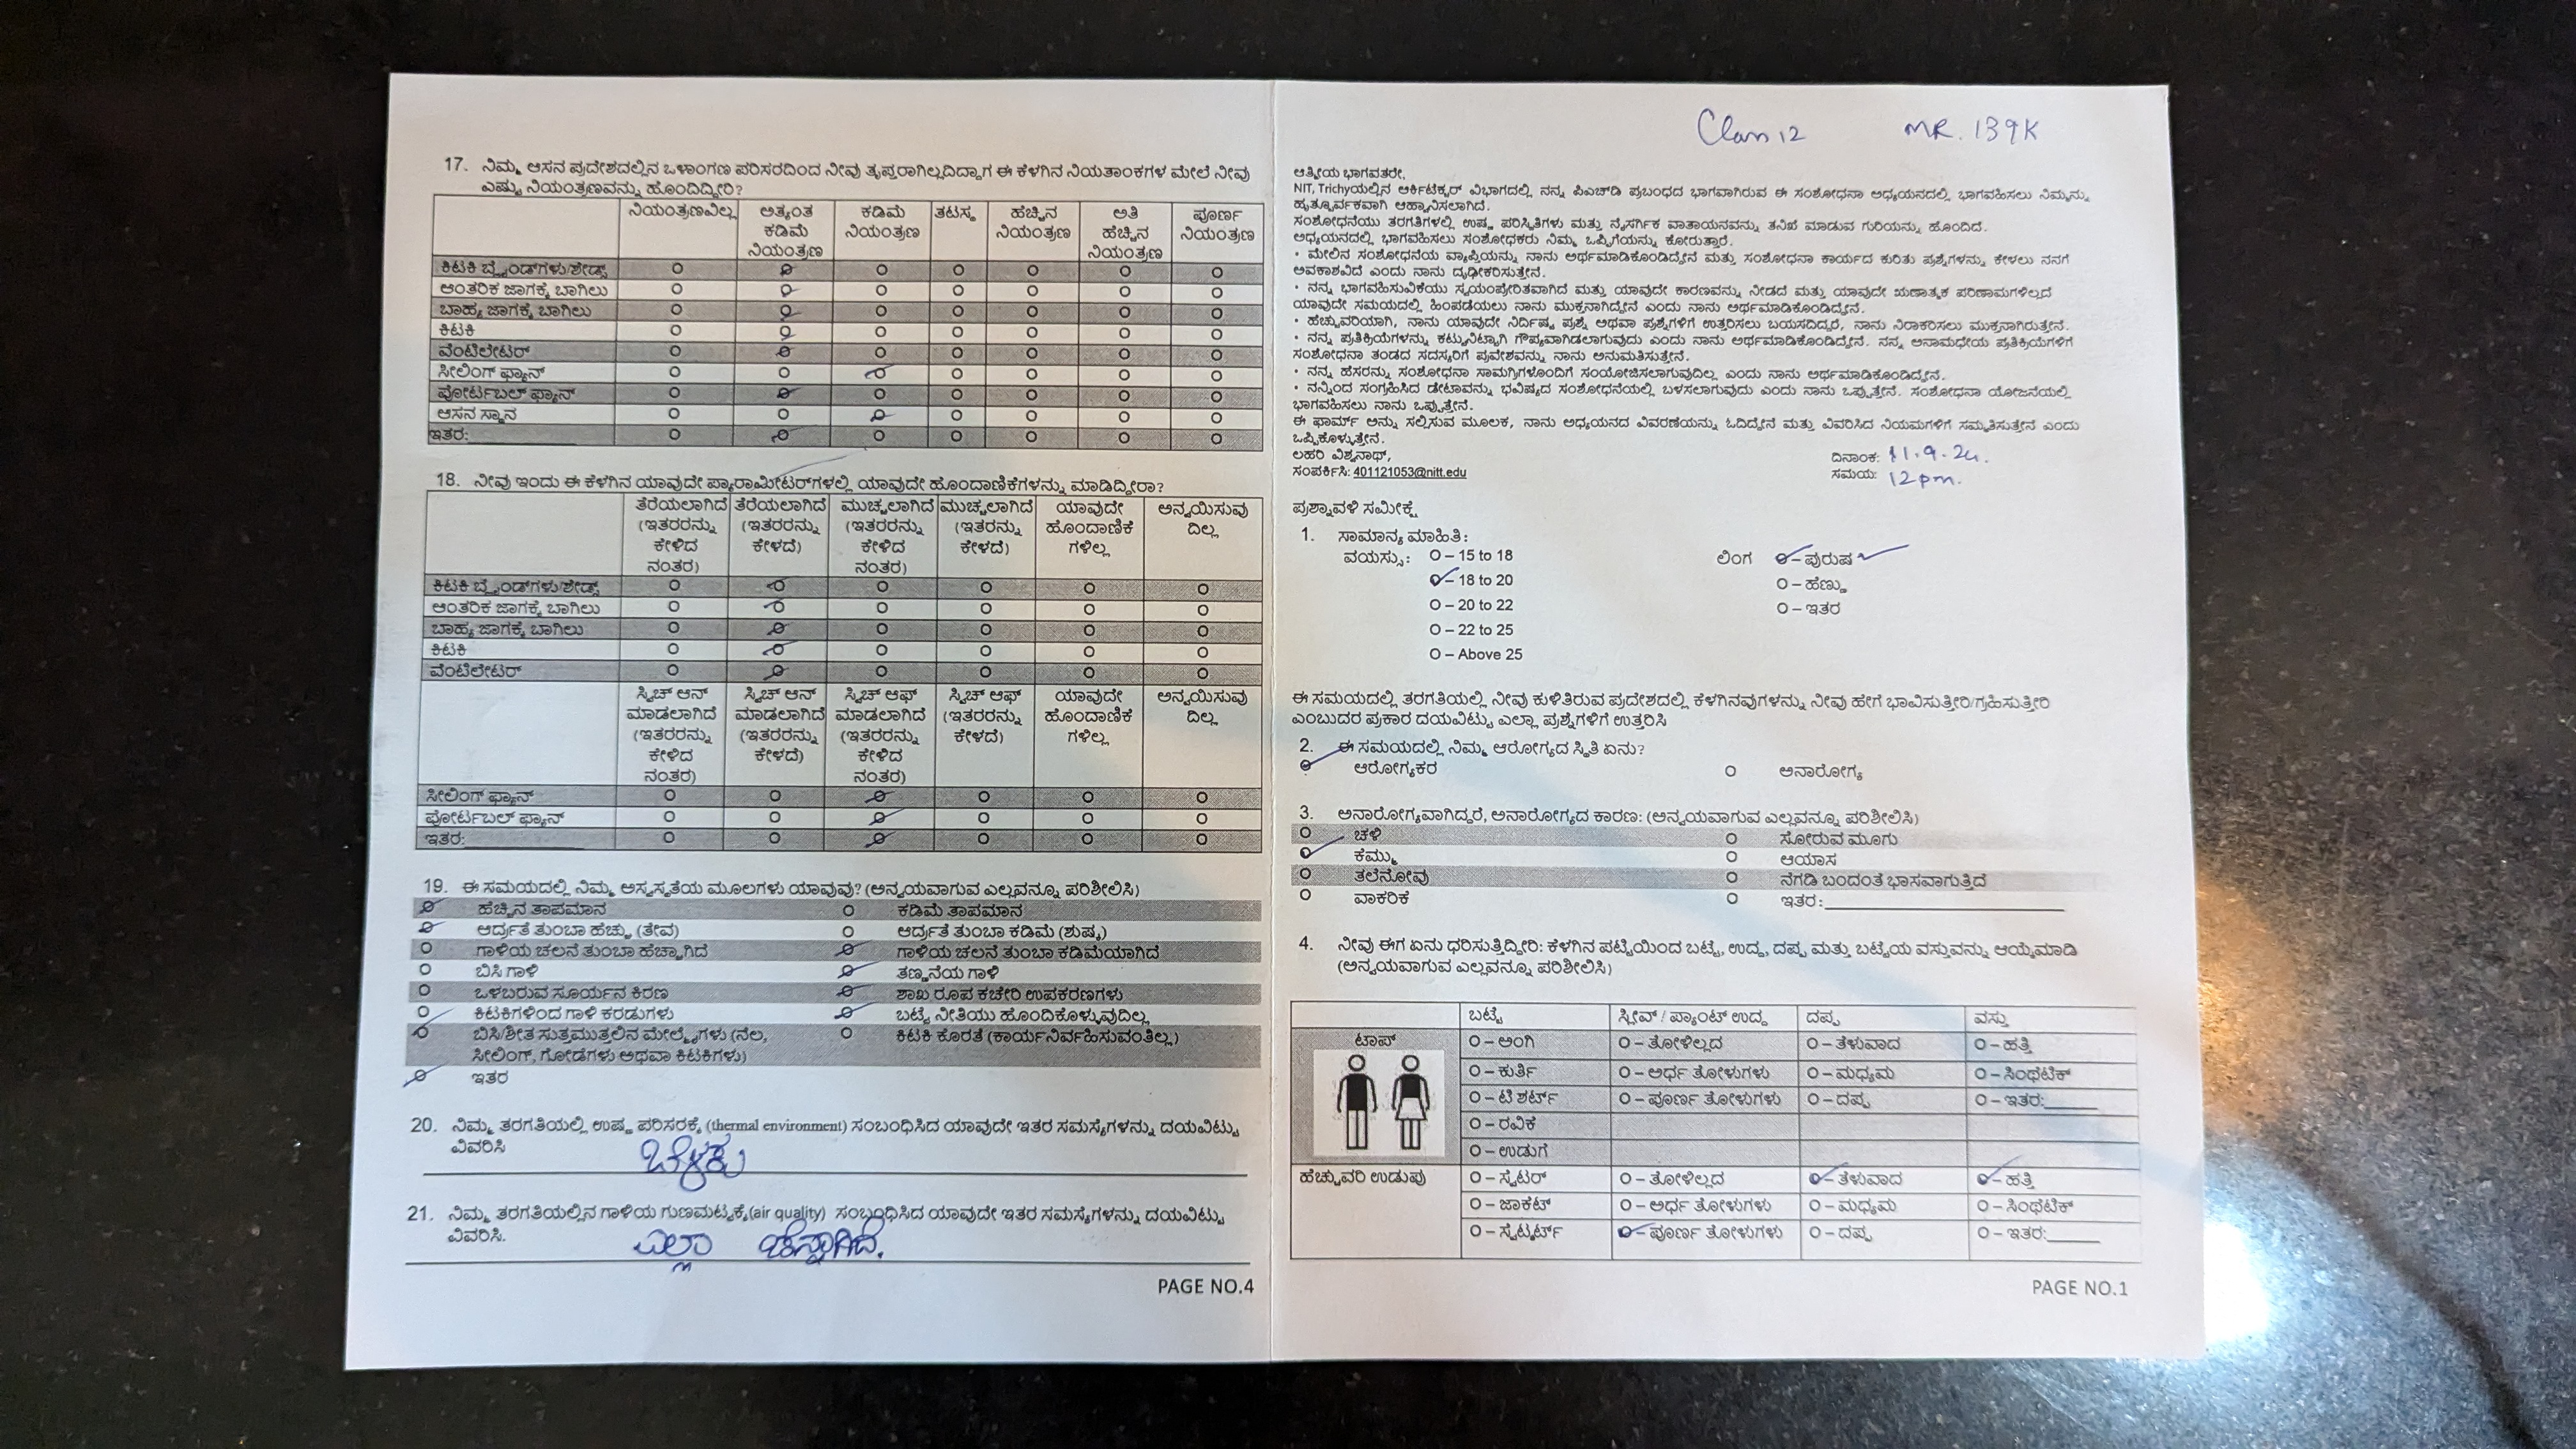 17. ನಿಮ್ಮ ಆಸನ ಪ್ರದೇಶದಲ್ಲಿನ ಒಳಾಂಗಣ ಪರಿಸರದಿಂದ ನೀವು ತೃಪ್ತರಾಗಿಲ್ಲದಿದ್ದಾಗ ಈ ಕೆಳಗಿನ ನಿಯತಾಂಕಗಳ ಮೇಲೆ ನೀವು
ಎಷ್ಟು ನಿಯಂತ್ರಣವನ್ನು ಹೊಂದಿದ್ದೀರಿ?
ನಿಯಂತ್ರಣವಿಲ್ಲ ಅತ್ಯಂತ ಕಡಿಮೆ ನಿಯಂತ್ರಣ ಕಡಿಮೆ ನಿಯಂತ್ರಣ ತಟಸ್ಥ ಹೆಚ್ಚಿನ ನಿಯಂತ್ರಣ ಅತಿ ಹೆಚ್ಚಿನ ನಿಯಂತ್ರಣ ಪೂರ್ಣ ನಿಯಂತ್ರಣ
ಕಿಟಕಿ ಬ್ಲೈಂಡ್‌ಗಳು/ಶೇಡ್ಸ್ O O O O O O O
ಆಂತರಿಕ ಜಾಗಕ್ಕೆ ಬಾಗಿಲು O O O O O O O
ಬಾಹ್ಯ ಜಾಗಕ್ಕೆ ಬಾಗಿಲು O O O O O O O
ಕಿಟಕಿ O O O O O O O
ವೆಂಟಿಲೇಟರ್ O O O O O O O
ಸೀಲಿಂಗ್ ಫ್ಯಾನ್ O O O O O O O
ಪೋರ್ಟಬಲ್ ಫ್ಯಾನ್ O O O O O O O
ಆಸನ ಸ್ಥಾನ O O O O O O O
ಇತರ: O O O O O O O
18. ನೀವು ಇಂದು ಈ ಕೆಳಗಿನ ಯಾವುದೇ ಪ್ಯಾರಾಮೀಟರ್‌ಗಳಲ್ಲಿ ಯಾವುದೇ ಹೊಂದಾಣಿಕೆಗಳನ್ನು ಮಾಡಿದ್ದೀರಾ?
ತೆರೆಯಲಾಗಿದೆ (ಇತರರನ್ನು ಕೇಳಿದ ನಂತರ) ತೆರೆಯಲಾಗಿದೆ (ಇತರರನ್ನು ಕೇಳದೆ) ಮುಚ್ಚಲಾಗಿದೆ (ಇತರರನ್ನು ಕೇಳಿದ ನಂತರ) ಮುಚ್ಚಲಾಗಿದೆ (ಇತರನ್ನು ಕೇಳದೆ) ಯಾವುದೇ ಹೊಂದಾಣಿಕೆ ಗಳಿಲ್ಲ ಅನ್ವಯಿಸುವು ದಿಲ್ಲ
ಕಿಟಕಿ ಬ್ಲೈಂಡ್‌ಗಳು/ಶೇಡ್ಸ್ O O O O O O
ಆಂತರಿಕ ಜಾಗಕ್ಕೆ ಬಾಗಿಲು O O O O O O
ಬಾಹ್ಯ ಜಾಗಕ್ಕೆ ಬಾಗಿಲು O O O O O O
ಕಿಟಕಿ O O O O O O
ವೆಂಟಿಲೇಟರ್ O O O O O O
ಸ್ವಿಚ್ ಆನ್ ಮಾಡಲಾಗಿದೆ (ಇತರರನ್ನು ಕೇಳಿದ ನಂತರ) ಸ್ವಿಚ್ ಆನ್ ಮಾಡಲಾಗಿದೆ (ಇತರರನ್ನು ಕೇಳದೆ) ಸ್ವಿಚ್ ಆಫ್ ಮಾಡಲಾಗಿದೆ (ಇತರರನ್ನು ಕೇಳಿದ ನಂತರ) ಸ್ವಿಚ್ ಆಫ್ (ಇತರರನ್ನು ಕೇಳದೆ) ಯಾವುದೇ ಹೊಂದಾಣಿಕೆ ಗಳಿಲ್ಲ ಅನ್ವಯಿಸುವು ದಿಲ್ಲ
ಸೀಲಿಂಗ್ ಫ್ಯಾನ್ O O O O O O
ಪೋರ್ಟಬಲ್ ಫ್ಯಾನ್ O O O O O O
ಇತರ: O O O O O O
19. ಈ ಸಮಯದಲ್ಲಿ ನಿಮ್ಮ ಅಸ್ವಸ್ಥತೆಯ ಮೂಲಗಳು ಯಾವುವು? (ಅನ್ವಯವಾಗುವ ಎಲ್ಲವನ್ನೂ ಪರಿಶೀಲಿಸಿ)
O ಹೆಚ್ಚಿನ ತಾಪಮಾನ O ಕಡಿಮೆ ತಾಪಮಾನ
O ಆರ್ದ್ರತೆ ತುಂಬಾ ಹೆಚ್ಚು (ತೇವ) O ಆರ್ದ್ರತೆ ತುಂಬಾ ಕಡಿಮೆ (ಶುಷ್ಕ)
O ಗಾಳಿಯ ಚಲನೆ ತುಂಬಾ ಹೆಚ್ಚಾಗಿದೆ O ಗಾಳಿಯ ಚಲನೆ ತುಂಬಾ ಕಡಿಮೆಯಾಗಿದೆ
O ಬಿಸಿ ಗಾಳಿ O ತಣ್ಣನೆಯ ಗಾಳಿ
O ಒಳಬರುವ ಸೂರ್ಯನ ಕಿರಣ O ಶಾಖ ರೂಪ ಕಚೇರಿ ಉಪಕರಣಗಳು
O ಕಿಟಕಿಗಳಿಂದ ಗಾಳಿ ಕರಡುಗಳು O ಬಟ್ಟೆ ನೀತಿಯು ಹೊಂದಿಕೊಳ್ಳುವುದಿಲ್ಲ
O ಬಿಸಿ/ಶೀತ ಸುತ್ತಮುತ್ತಲಿನ ಮೇಲ್ಮೈಗಳು (ನೆಲ, O ಕಿಟಕಿ ಕೊರತೆ (ಕಾರ್ಯನಿರ್ವಹಿಸುವಂತಿಲ್ಲ)
ಸೀಲಿಂಗ್, ಗೋಡೆಗಳು ಅಥವಾ ಕಿಟಕಿಗಳು)
O ಇತರ
20. ನಿಮ್ಮ ತರಗತಿಯಲ್ಲಿ ಉಷ್ಣ ಪರಿಸರಕ್ಕೆ (thermal environment) ಸಂಬಂಧಿಸಿದ ಯಾವುದೇ ಇತರ ಸಮಸ್ಯೆಗಳನ್ನು ದಯವಿಟ್ಟು
ವಿವರಿಸಿ
21. ನಿಮ್ಮ ತರಗತಿಯಲ್ಲಿನ ಗಾಳಿಯ ಗುಣಮಟ್ಟಕ್ಕೆ(air quality) ಸಂಬಂಧಿಸಿದ ಯಾವುದೇ ಇತರ ಸಮಸ್ಯೆಗಳನ್ನು ದಯವಿಟ್ಟು
ವಿವರಿಸಿ. ಎಲ್ಲಾ ಚೆನ್ನಾಗಿದೆ.
PAGE NO.4
Class 12 MR. 139K
ಆತ್ಮೀಯ ಭಾಗವತರೇ,
NIT, Trichyಯಲ್ಲಿನ ಆರ್ಕಿಟೆಕ್ಚರ್ ವಿಭಾಗದಲ್ಲಿ ನನ್ನ ಪಿಎಚ್‌ಡಿ ಪ್ರಬಂಧದ ಭಾಗವಾಗಿರುವ ಈ ಸಂಶೋಧನಾ ಅಧ್ಯಯನದಲ್ಲಿ ಭಾಗವಹಿಸಲು ನಿಮ್ಮನ್ನು
ಹೃತ್ಪೂರ್ವಕವಾಗಿ ಆಹ್ವಾನಿಸಲಾಗಿದೆ.
ಸಂಶೋಧನೆಯು ತರಗತಿಗಳಲ್ಲಿ ಉಷ್ಣ ಪರಿಸ್ಥಿತಿಗಳು ಮತ್ತು ನೈಸರ್ಗಿಕ ವಾತಾಯನವನ್ನು ತನಿಖೆ ಮಾಡುವ ಗುರಿಯನ್ನು ಹೊಂದಿದೆ.
ಅಧ್ಯಯನದಲ್ಲಿ ಭಾಗವಹಿಸಲು ಸಂಶೋಧಕರು ನಿಮ್ಮ ಒಪ್ಪಿಗೆಯನ್ನು ಕೋರುತ್ತಾರೆ.
• ಮೇಲಿನ ಸಂಶೋಧನೆಯ ವ್ಯಾಪ್ತಿಯನ್ನು ನಾನು ಅರ್ಥಮಾಡಿಕೊಂಡಿದ್ದೇನೆ ಮತ್ತು ಸಂಶೋಧನಾ ಕಾರ್ಯದ ಕುರಿತು ಪ್ರಶ್ನೆಗಳನ್ನು ಕೇಳಲು ನನಗೆ
ಅವಕಾಶವಿದೆ ಎಂದು ನಾನು ದೃಢೀಕರಿಸುತ್ತೇನೆ.
• ನನ್ನ ಭಾಗವಹಿಸುವಿಕೆಯು ಸ್ವಯಂಪ್ರೇರಿತವಾಗಿದೆ ಮತ್ತು ಯಾವುದೇ ಕಾರಣವನ್ನು ನೀಡದೆ ಮತ್ತು ಯಾವುದೇ ಋಣಾತ್ಮಕ ಪರಿಣಾಮಗಳಿಲ್ಲದೆ
ಯಾವುದೇ ಸಮಯದಲ್ಲಿ ಹಿಂಪಡೆಯಲು ನಾನು ಮುಕ್ತನಾಗಿದ್ದೇನೆ ಎಂದು ನಾನು ಅರ್ಥಮಾಡಿಕೊಂಡಿದ್ದೇನೆ.
• ಹೆಚ್ಚುವರಿಯಾಗಿ, ನಾನು ಯಾವುದೇ ನಿರ್ದಿಷ್ಟ ಪ್ರಶ್ನೆ ಅಥವಾ ಪ್ರಶ್ನೆಗಳಿಗೆ ಉತ್ತರಿಸಲು ಬಯಸದಿದ್ದರೆ, ನಾನು ನಿರಾಕರಿಸಲು ಮುಕ್ತನಾಗಿರುತ್ತೇನೆ.
• ನನ್ನ ಪ್ರತಿಕ್ರಿಯೆಗಳನ್ನು ಕಟ್ಟುನಿಟ್ಟಾಗಿ ಗೌಪ್ಯವಾಗಿಡಲಾಗುವುದು ಎಂದು ನಾನು ಅರ್ಥಮಾಡಿಕೊಂಡಿದ್ದೇನೆ. ನನ್ನ ಅನಾಮಧೇಯ ಪ್ರತಿಕ್ರಿಯೆಗಳಿಗೆ
ಸಂಶೋಧನಾ ತಂಡದ ಸದಸ್ಯರಿಗೆ ಪ್ರವೇಶವನ್ನು ನಾನು ಅನುಮತಿಸುತ್ತೇನೆ.
• ನನ್ನ ಹೆಸರನ್ನು ಸಂಶೋಧನಾ ಸಾಮಗ್ರಿಗಳೊಂದಿಗೆ ಸಂಯೋಜಿಸಲಾಗುವುದಿಲ್ಲ ಎಂದು ನಾನು ಅರ್ಥಮಾಡಿಕೊಂಡಿದ್ದೇನೆ.
• ನನ್ನಿಂದ ಸಂಗ್ರಹಿಸಿದ ಡೇಟಾವನ್ನು ಭವಿಷ್ಯದ ಸಂಶೋಧನೆಯಲ್ಲಿ ಬಳಸಲಾಗುವುದು ಎಂದು ನಾನು ಒಪ್ಪುತ್ತೇನೆ. ಸಂಶೋಧನಾ ಯೋಜನೆಯಲ್ಲಿ
ಭಾಗವಹಿಸಲು ನಾನು ಒಪ್ಪುತ್ತೇನೆ.
ಈ ಫಾರ್ಮ್ ಅನ್ನು ಸಲ್ಲಿಸುವ ಮೂಲಕ, ನಾನು ಅಧ್ಯಯನದ ವಿವರಣೆಯನ್ನು ಓದಿದ್ದೇನೆ ಮತ್ತು ವಿವರಿಸಿದ ನಿಯಮಗಳಿಗೆ ಸಮ್ಮತಿಸುತ್ತೇನೆ ಎಂದು
ಒಪ್ಪಿಕೊಳ್ಳುತ್ತೇನೆ.
ಲಹರಿ ವಿಶ್ವನಾಥ್, ದಿನಾಂಕ: 11.9.24.
ಸಂಪರ್ಕಿಸಿ: 401121053@nitt.edu ಸಮಯ: 12pm.
ಪ್ರಶ್ನಾವಳಿ ಸಮೀಕ್ಷೆ
1. ಸಾಮಾನ್ಯ ಮಾಹಿತಿ:
ವಯಸ್ಸು: O – 15 to 18 ಲಿಂಗ O – ಪುರುಷ
O – 18 to 20 O – ಹೆಣ್ಣು
O – 20 to 22 O – ಇತರ
O – 22 to 25
O – Above 25
ಈ ಸಮಯದಲ್ಲಿ ತರಗತಿಯಲ್ಲಿ ನೀವು ಕುಳಿತಿರುವ ಪ್ರದೇಶದಲ್ಲಿ ಕೆಳಗಿನವುಗಳನ್ನು ನೀವು ಹೇಗೆ ಭಾವಿಸುತ್ತೀರಿ/ಗ್ರಹಿಸುತ್ತೀರಿ
ಎಂಬುದರ ಪ್ರಕಾರ ದಯವಿಟ್ಟು ಎಲ್ಲಾ ಪ್ರಶ್ನೆಗಳಿಗೆ ಉತ್ತರಿಸಿ
2. ಈ ಸಮಯದಲ್ಲಿ ನಿಮ್ಮ ಆರೋಗ್ಯದ ಸ್ಥಿತಿ ಏನು?
O ಆರೋಗ್ಯಕರ O ಅನಾರೋಗ್ಯ
3. ಅನಾರೋಗ್ಯವಾಗಿದ್ದರೆ, ಅನಾರೋಗ್ಯದ ಕಾರಣ: (ಅನ್ವಯವಾಗುವ ಎಲ್ಲವನ್ನೂ ಪರಿಶೀಲಿಸಿ)
O ಚಳಿ O ಸೋರುವ ಮೂಗು
O ಕೆಮ್ಮು O ಆಯಾಸ
O ತಲೆನೋವು O ನೆಗಡಿ ಬಂದಂತೆ ಭಾಸವಾಗುತ್ತಿದೆ
O ವಾಕರಿಕೆ O ಇತರ:
4. ನೀವು ಈಗ ಏನು ಧರಿಸುತ್ತಿದ್ದೀರಿ: ಕೆಳಗಿನ ಪಟ್ಟಿಯಿಂದ ಬಟ್ಟೆ, ಉದ್ದ, ದಪ್ಪ ಮತ್ತು ಬಟ್ಟೆಯ ವಸ್ತುವನ್ನು ಆಯ್ಕೆಮಾಡಿ
(ಅನ್ವಯವಾಗುವ ಎಲ್ಲವನ್ನೂ ಪರಿಶೀಲಿಸಿ)
ಬಟ್ಟೆ ಸ್ಲೀವ್ / ಪ್ಯಾಂಟ್ ಉದ್ದ ದಪ್ಪ ವಸ್ತು
ಟಾಪ್ O – ಅಂಗಿ O – ತೋಳಿಲ್ಲದ O – ತೆಳುವಾದ O – ಹತ್ತಿ
O – ಕುರ್ತಿ O – ಅರ್ಧ ತೋಳುಗಳು O – ಮಧ್ಯಮ O – ಸಿಂಥೆಟಿಕ್
O – ಟಿ ಶರ್ಟ್ O – ಪೂರ್ಣ ತೋಳುಗಳು O – ದಪ್ಪ O – ಇತರ:
O – ರವಿಕೆ
O – ಉಡುಗೆ
ಹೆಚ್ಚುವರಿ ಉಡುಪು O – ಸ್ವೆಟರ್ O – ತೋಳಿಲ್ಲದ O – ತೆಳುವಾದ O – ಹತ್ತಿ
O – ಜಾಕೆಟ್ O – ಅರ್ಧ ತೋಳುಗಳು O – ಮಧ್ಯಮ O – ಸಿಂಥೆಟಿಕ್
O – ಸ್ವೆಟ್ಶರ್ಟ್ O – ಪೂರ್ಣ ತೋಳುಗಳು O – ದಪ್ಪ O – ಇತರ:
PAGE NO.1